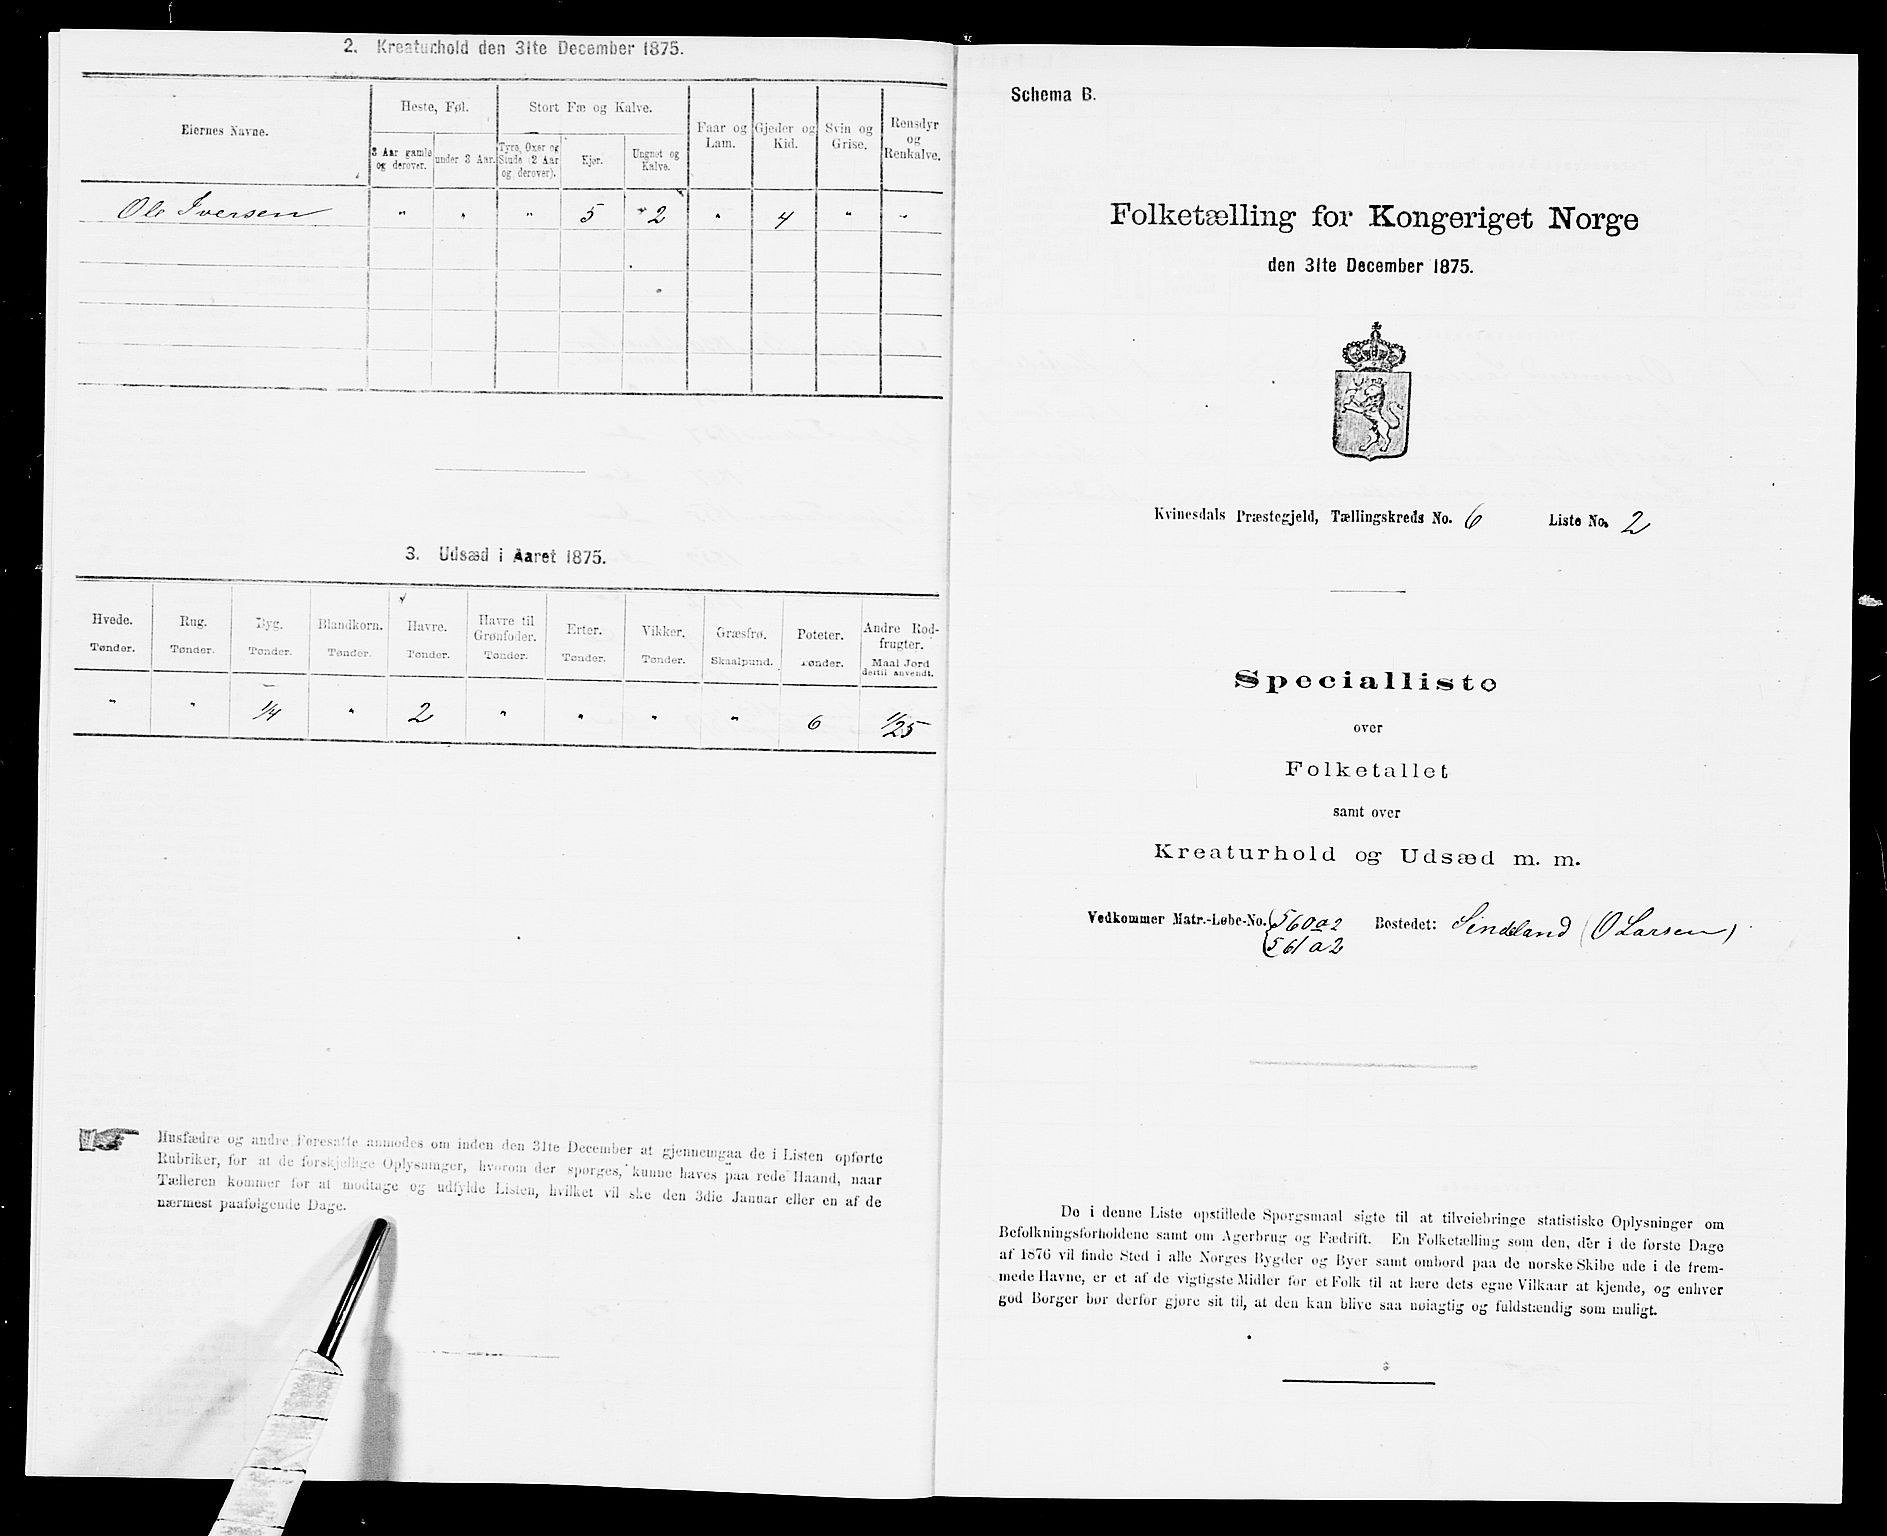 2. Kreaturhold den 31te December 1875.
Eiernes Navne.
Heste, Føl.
Stort Fæ og Kalve.
Faar og Lam.
Gjeder og Kid.
Svin og Grise.
Rensdyr og Renkalve.
3 Aar gamle og derover.
under 3 Aar.
Tyre, Oxer og Stude (2 Aar og derover).
Kjør.
Ungnøt og Kalve.
Ole Iversen " " " 5 " 2 " 4 " "
3. Udsæd i Aaret 1875.
Hvede. Rug. Byg. Blandkorn. Havre. Havre til Grønfoder. Erter. Vikker. Græsfrø. Poteter. Andre Rodfrugter.
Tønder. Tønder. Tønder. Tønder. Tønder. Tønder. Tønder. Tønder. Skaalpund. Tønder. Maal Jord dertil anvendt.
" " 1/4 " 2 " " " " 6 1/25
Husfædre og andre Foresatte anmodes om inden den 31te December at gjennemgaa de i Listen opførte
Rubriker, for at de forskjellige Oplysninger, hvorom der spørges, kunne haves paa rede Haand, naar
Tælleren kommer for at modtage og udfylde Listen, hvilket vil ske den 3die Januar eller en af de
nærmest paafølgende Dage.
Schema B.
Folketælling for Kongeriget Norge
den 31te December 1875.
Kvinesdals Præstegjeld, Tællingskreds No. 6 Liste No. 2
Specialliste
over
Folketallet
samt over
Kreaturhold og Udsæd m. m.
Vedkommer Matr.-Løbe-No. 560a2 Bostedet: Sindland (O Larsen)
561a2
De i denne Liste opstillede Spørgsmaal sigte til at tilveiebringe statistiske Oplysninger om
Befolkningsforholdene samt om Agerbrug og Fædrift. En Folketælling som den, der i de første Dage
af 1876 vil finde Sted i alle Norges Bygder og Byer samt ombord paa de norske Skibe ude i de frem-
mede Havne, er et af de vigtigste Midler for et Folk til at lære dets egne Vilkaar at kjende, og enhver
god Borger bør derfor gjøre sit til, at den kan blive saa nøiagtig og fuldstændig som muligt.